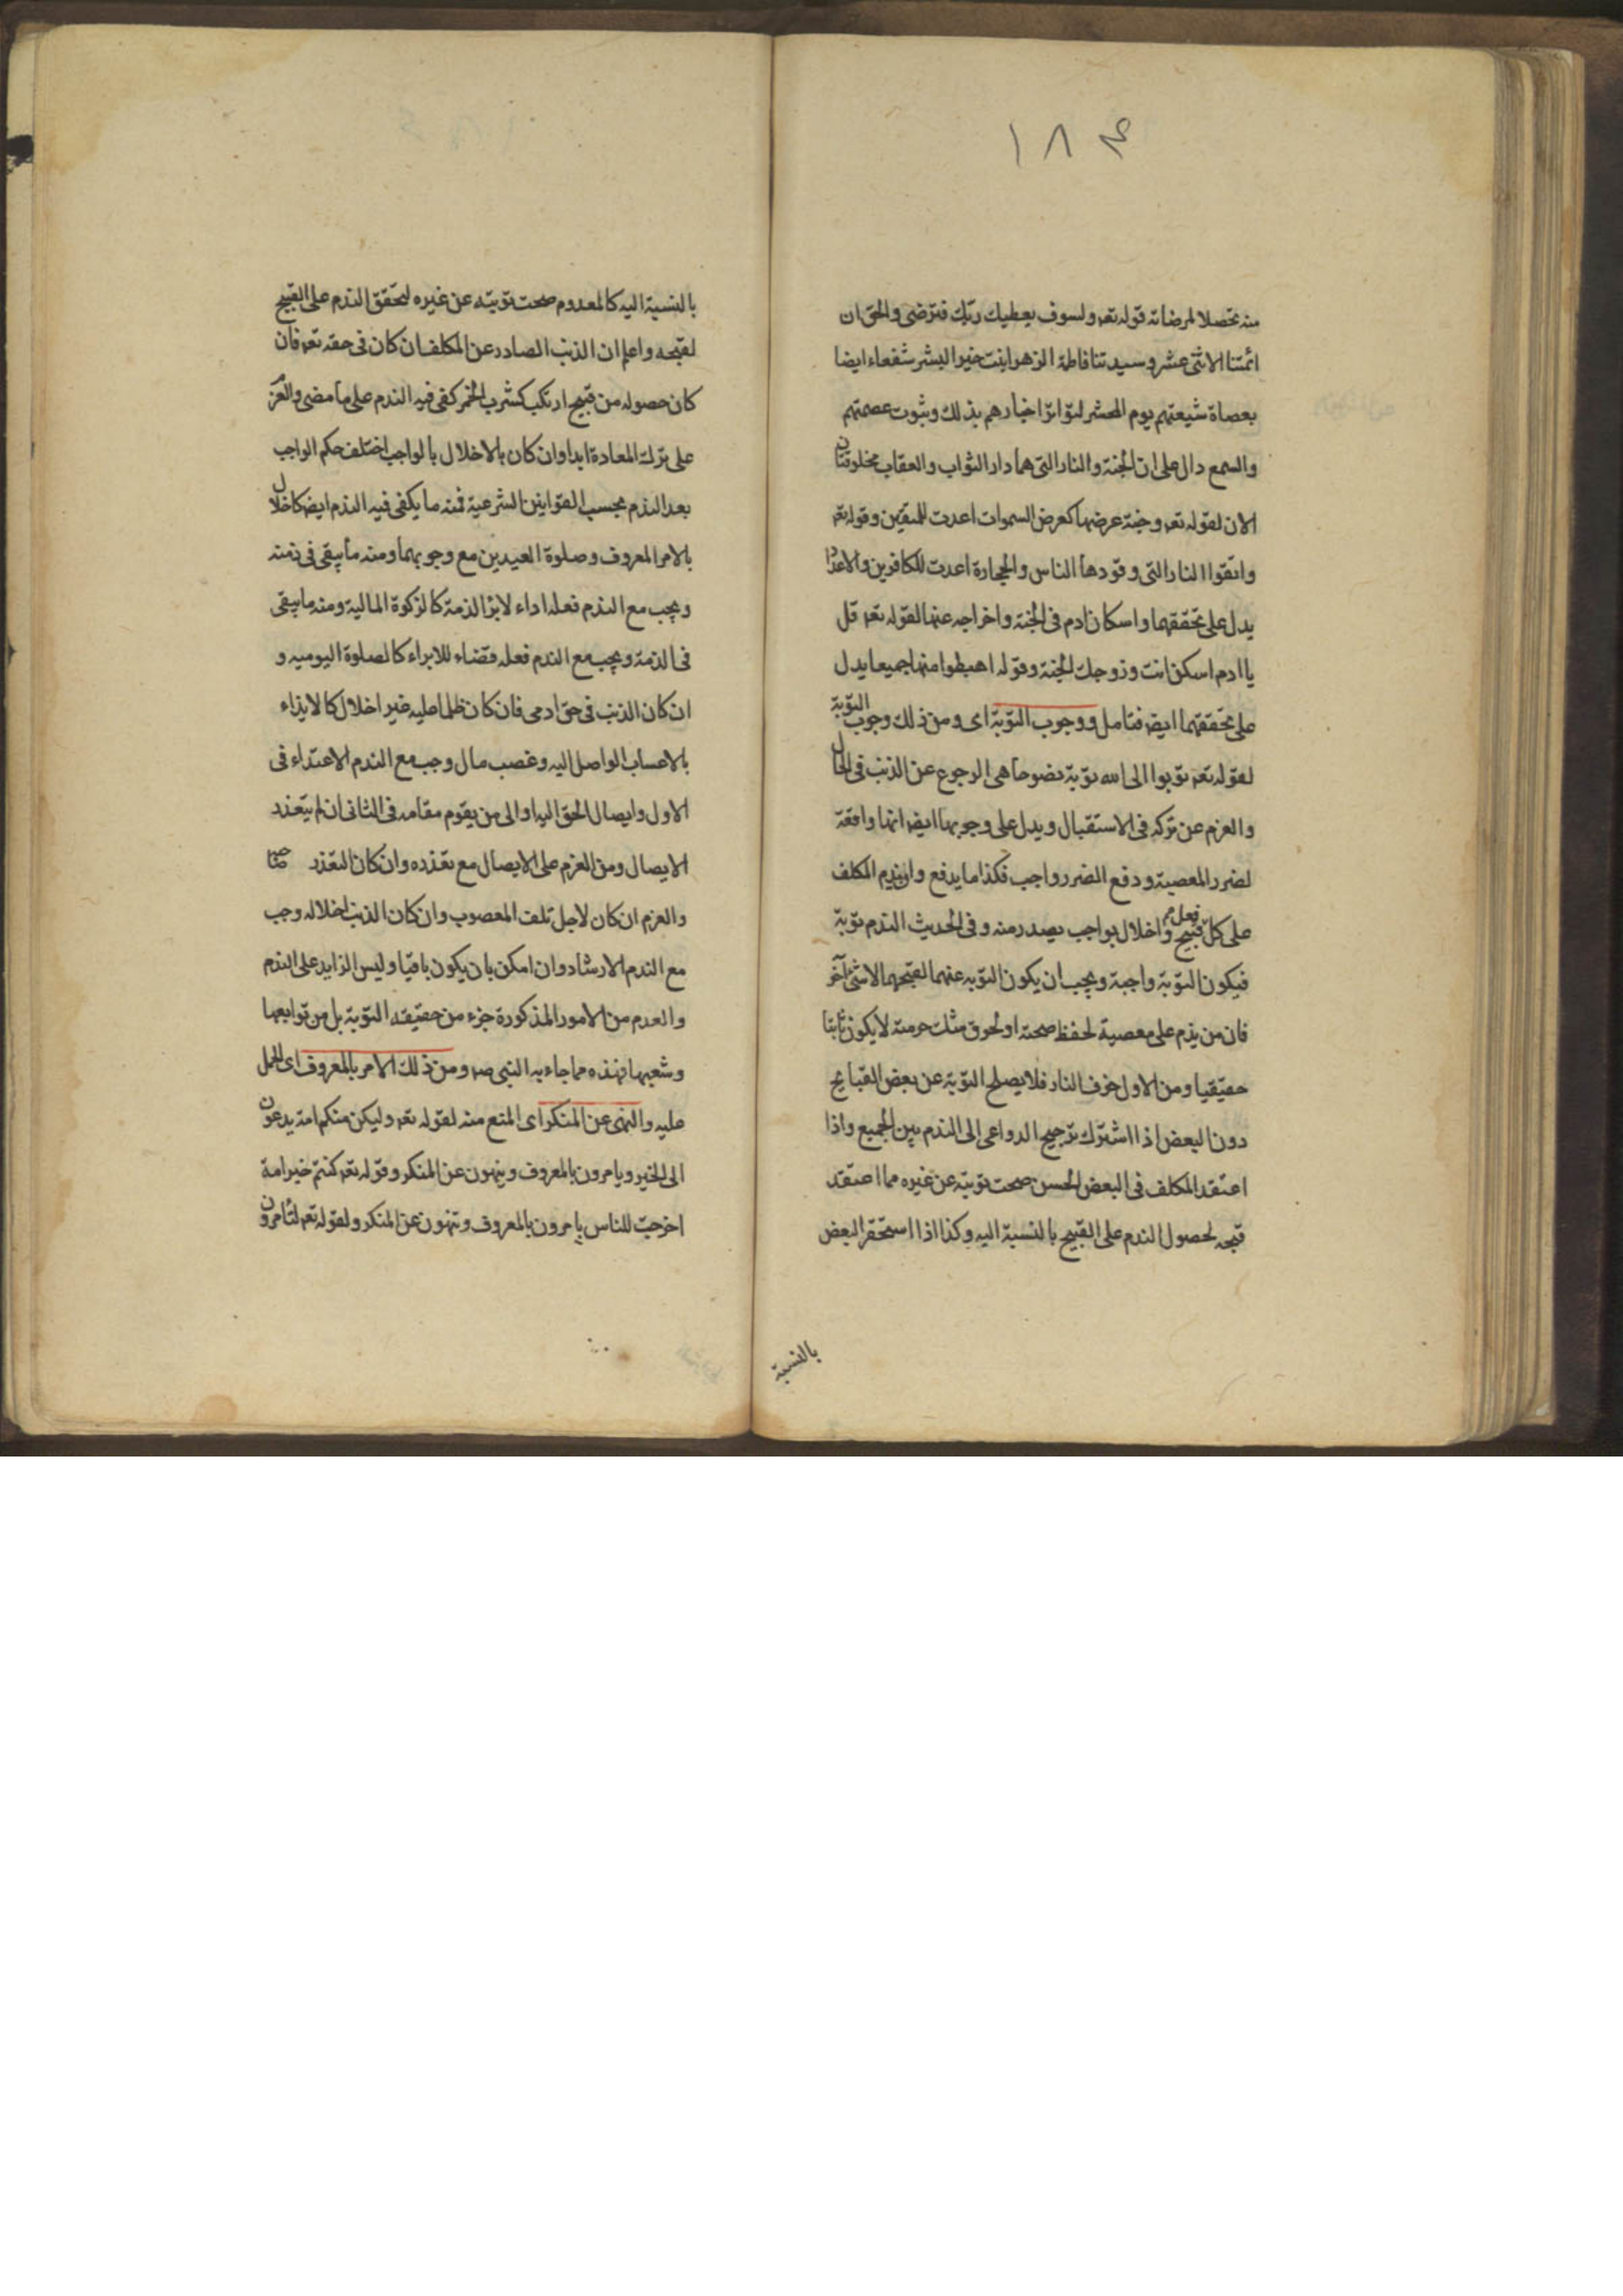 ۱۸۴
منه تحصلا لمرضاته قوله تعه ولسوف يعطيك ربك فترضى والحق ان
ائمتنا الاثنى عشر وسيدتنا فاطمة الزهرا بنت خير البشر شفعاء ايضا
بعصاة شيعتهم يوم المحشر لتواتر اخبارهم بذلك وثبوت عصمتهم
والسمع دال على ان الجنة والنار التى هما دار الثواب والعقاب مخلوقتان
الان لقوله تعه وجنة عرضها كعرض السموات اعدت للمتقين وقوله تعه
واتقوا النار التى وقودها الناس والحجارة اعدت للكافرين والاعداد
يدل على تحققهما واسكان ادم فى الجنة واخراجه عنها لقوله تعه قل
يا ادم اسكن انت وزوجك الجنة وقوله اهبطوا منها جميعا يدل
على تحققهما ايضه فتامل ووجوب التوبة اى ومن ذلك وجوب التوبة
لقوله تعه توبوا الى الله توبة نصوحا هى الرجوع عن الذنب فى الحال
والعزم عن تركه فى الاستقبال ويدل على وجوبها ايضه انها دافعة
لضرر المعصية ودفع الضرر واجب فكذا ما يدفع وان يندم المكلف
على كل فعل قبيح واخلال بواجب يصدر منه وفى الحديث الندم توبة
فيكون التوبة واجبة ويجب ان يكون التوبه عنهما لقبحهما لا لشئ آخر
فان من يذم على معصية لحفظ صحته او لحوق مثلت حرمته لا يكون تائبا
حقيقيا ومن الاول خوف النار فلا يصلح التوبة عن بعض القبايح
دون البعض اذا اشترك ترجيح الدواعى الى الندم بين الجميع واذا
اعتقد المكلف فى البعض الحسن صحت توبته عن غيره مما اعتقد
قبحه لحصول الندم على القبيح بالنسبة اليه وكذا اذا استحقر البعض
بالنسبة
بالنسبة اليه كالمعدوم صحت توبته عن غيره لتحقق الندم على القبيح
لقبحه واعلم ان الذنب الصادر عن المكلف ان كان فى حقه تعه فان
كان حصوله من قبيح ارتكب كشرب الخمر كفى فيه الندم على ما مضى والعزم
على ترك المعادة ابدا وان كان بالاخلال بالواجب اختلف حكم الواجب
بعد الندم بحسب القوانين الشرعية فمنه ما يكفى فيه الندم ايضه كاخلال
بالامر المعروف وصلوة العيدين مع وجوبهما ومنه ما يبقى فى ذمته
ويجب مع الندم فعله اداء لابرا الذمة كالزكوة المالية ومنه ما يبقى
فى الذمة ويجب مع الندم فعله قضاء للابراء كالصلوة اليوميه و
ان كان الذنب فى حق ادمى فان كان ظلما عليه غير اخلال كالايذاء
بالاعساب الواصل اليه وغصب مال وجب مع الندم الاعتذاء فى
الاول وايصال الحق اليه او الى من يقوم مقامه فى الثانى ان لم يتعذر
الايصال ومن العزم على الايصال مع تعذره وان كان التعذر
والعزم ان كان لاجل تلف المغصوب وان كان الذنب اخلاله وجب
مع الندم الارشاد وان امكن بان يكون باقيا وليس الزايد على الندم
والعدم من الامور المذكورة جزء من حقيقه التوبة بل من توابعها
وشعبها فهذه مما جاء به النبى صه ومن ذلك الامر بالمعروف اى الحمل
عليه والنهى عن المنكر اى المنع منه لقوله تعه وليكن منكم امة يدعون
الى الخير ويامرون بالمعروف وينهون عن المنكر وقوله تعه كنتم خير امة
اخرجت للناس يامرون بالمعروف وتنهون عن المنكر ولقوله تعه لتأمرون